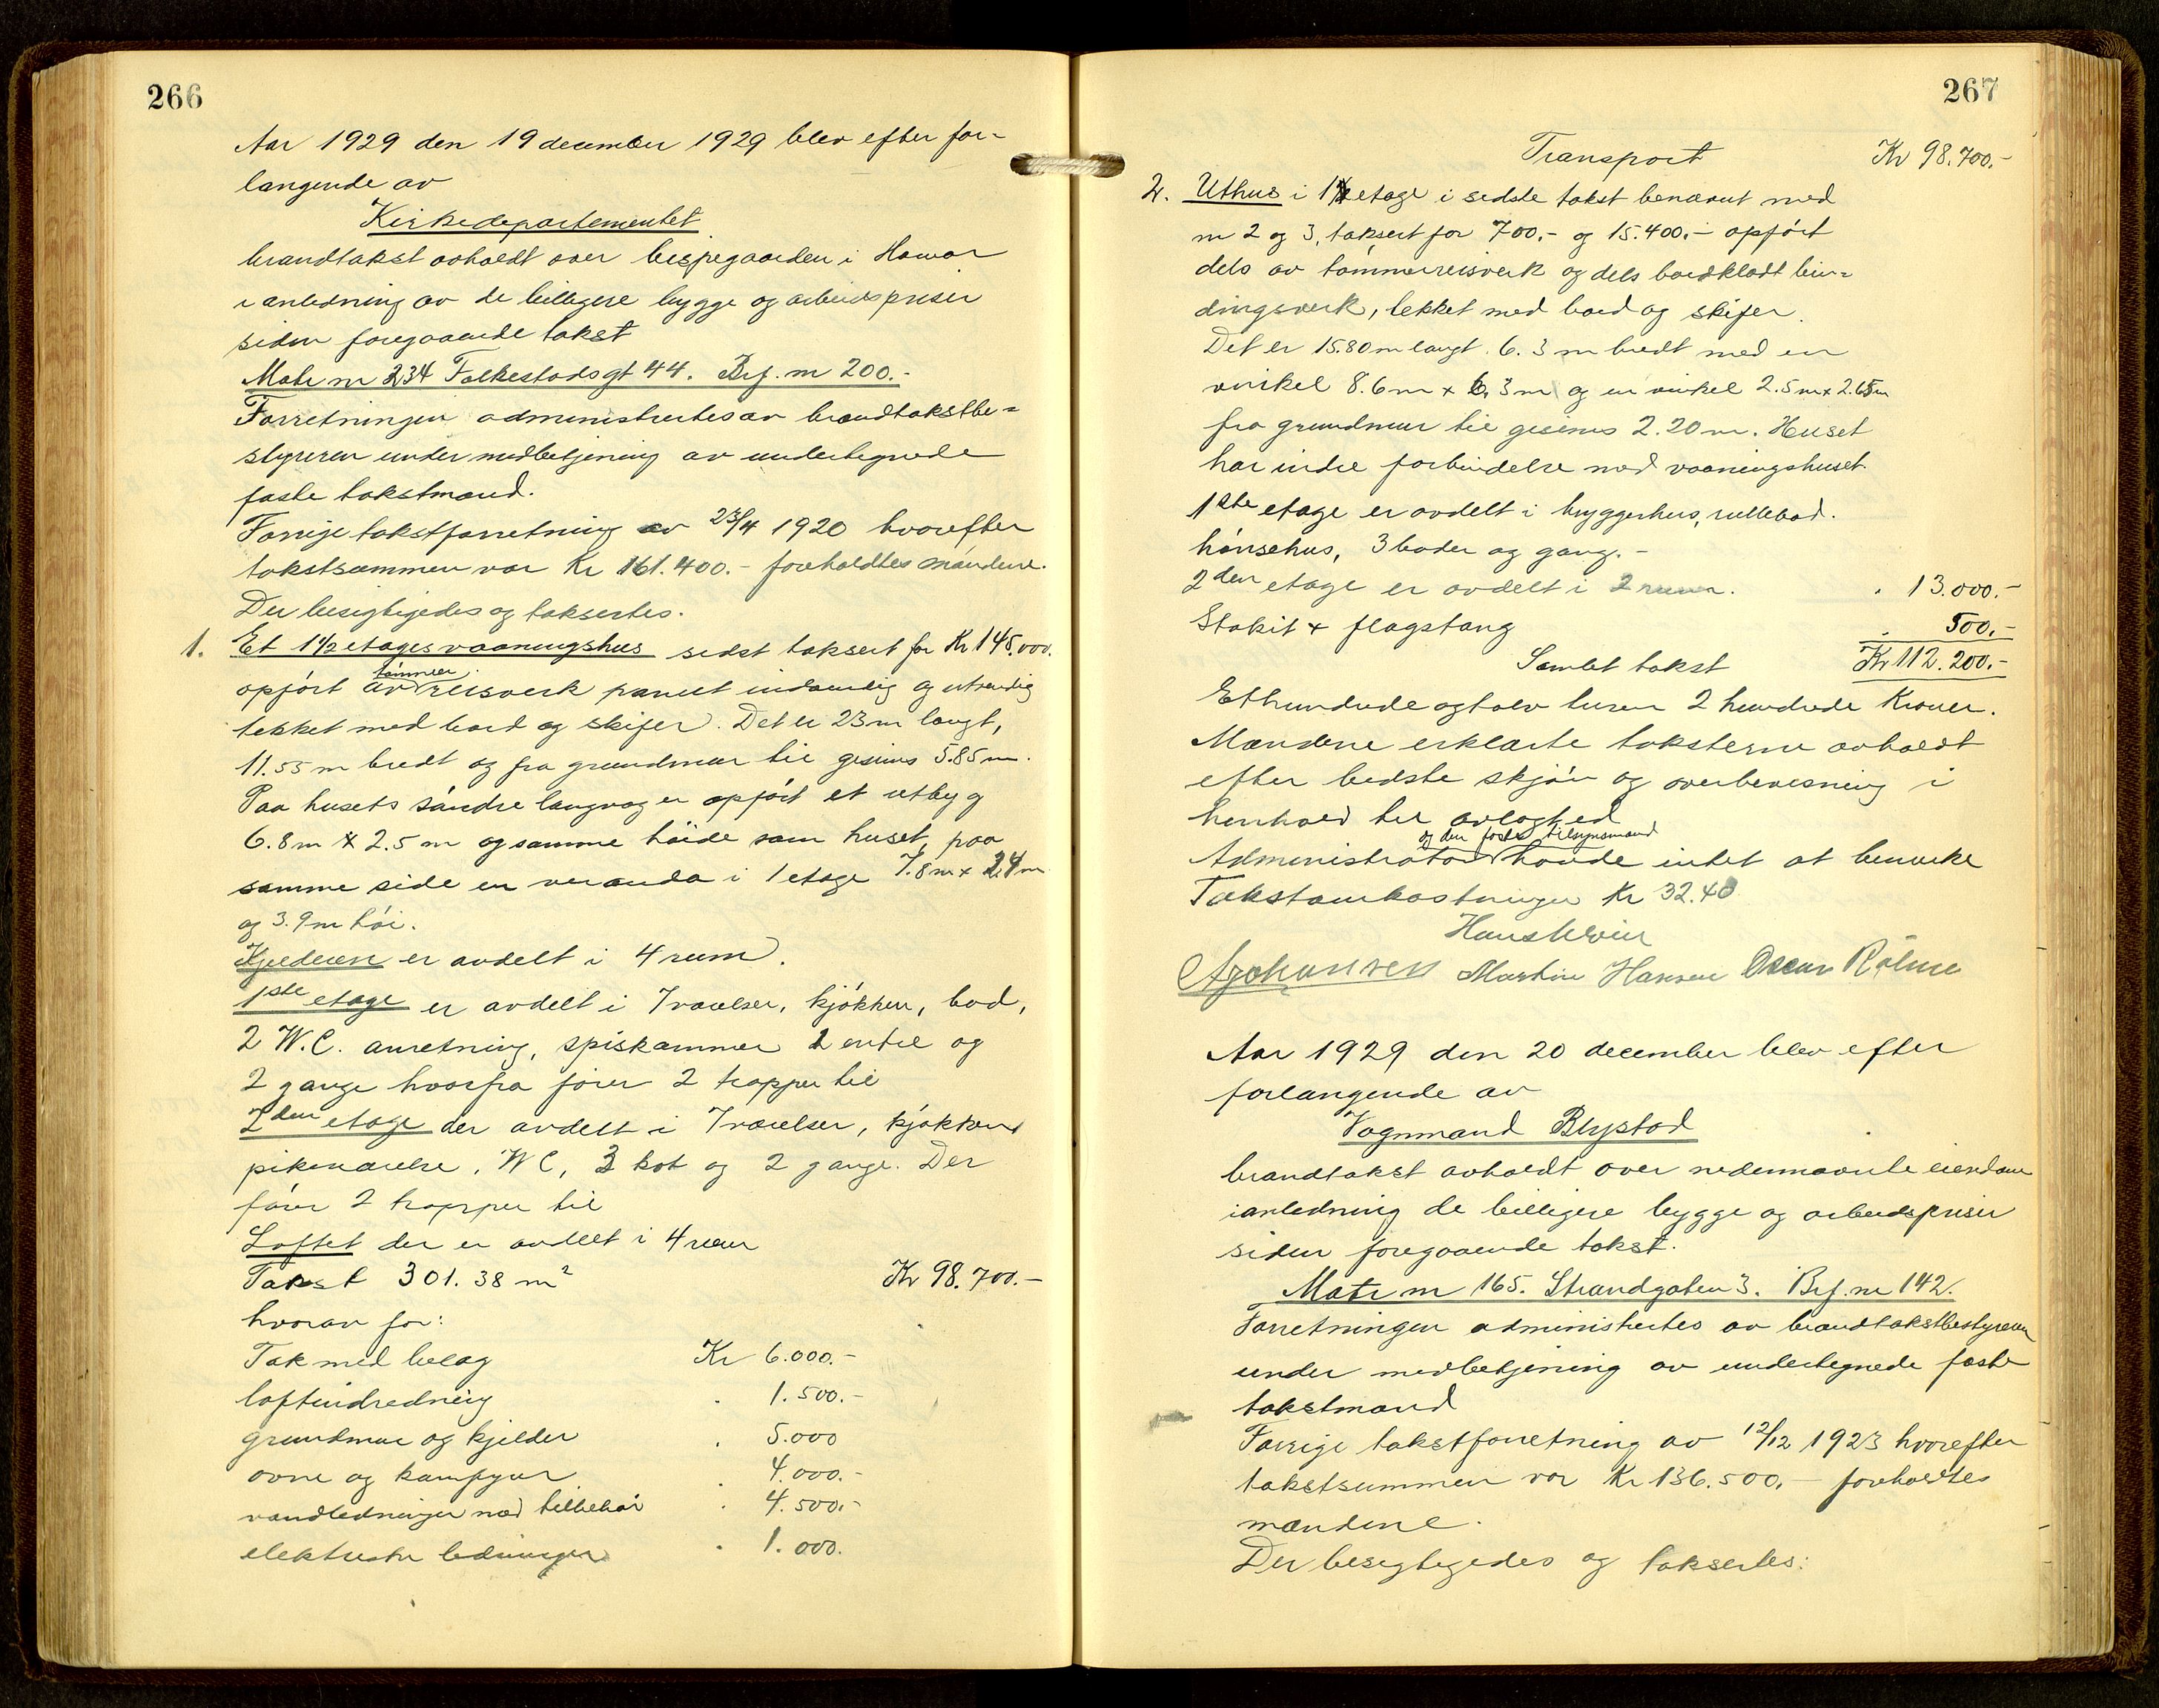 266
Aar 1929 den 19 december 1929 blev efter for-
langende av
Kirkedepartementet
brandtakst avholdt over bispegaarden i Hamar
i anledning av de billigere bygge og arbeidspriser
siden foregaaende takst
Matr nr 234 Falkestadsgt 44. Brf. nr 200.-
Forretningen administrertes av brandtakstbe-
styreren under medbetjening av undertegnede
faste takstmænd.
Forrige takstforretning av 23/4 1920 hvorefter
takstsummen var Kr 161.400.- foreholdtes mændene.
Der besigtigedes og taksertes.
1. Et 1 1/2 etages vaaningshus sidst taksert for Kr 145.000.
opført av tømmer reisverk panelt indvendig og utvendig
tekket med bord og skifer. Det er 23 m langt,
11.55 m bredt og fra grundmur til gesims 5.85 m.
Paa husets søndre langvæg er opført et utbyg
6.8 m x 2.5 m og samme høide som huset, paa
samme side en veranda i 1 etage 7.8 m x 2.4 m
og 3.9 m høi.
Kjelderen er avdelt i 4 rum.
1ste etage er avdelt i 7 værelser, kjøkken, bod,
2 W.C. anretning, spiskammer 2 entre og
2 gange hvorfra fører 2 trapper til
2den etage der avdelt i 7 værelser, kjøkken
pikeværelse, WC, 3 kot og 2 gange. Der
fører 2 trapper til
Loftet der er avdelt i 4 rum
Takst 301.38 m² Kr 98.700.-
hvorav for:
Tak med belag Kr 6.000.-
loftindredning " 1.500.-
grundmur og kjelder " 5.000
ovne og komfyrer " 4.000.-
vandledninger med tilbehør " 4.500.-
elektriske ledninger " 1.000.
267
Transport Kr 98.700.-
2. Uthus i 1 etage i sidste takst benævnt med
nr 2 og 3, taksert for 700.- og 15.400.- opført
dels av tømmerreisverk og dels bordklædt bin-
dingsverk, tekket med bord og skifer.
Det er 15.80 m langt. 6.3 m bredt med en
vinkel 8.6 m x 6.3 m og en vinkel 2.5 m x 2.65 m
fra grundmur til gesims 2.20 m. Huset
har indre forbindelse med vaaningshuset.
1ste etage er avdelt i bryggerhus, rullebod.
hønsehus, 3 boder og gang.-
2den etage er avdelt i 2 rum. " 13.000.-
Stakit + flagstang " 500.-
Samlet takst Kr 112.200.-
Ethundrede og tolv tusen 2 hundrede Kroner.
Mændene erklærte taksterne avholdt
efter bedste skjøn og overbevisning i
henhold til avlagt ed
og den faste tilsynsmand
Administrator havde intet at bemerke
Takstomkostninger Kr 32.40
Martin Hansen Oscar
Aar 1929 den 20 december blev efter
forlangende av
Vognmand Blystad
brandtakst avholdt over nedennævnte eiendom
i anledning de billigere bygge og arbeidspriser
siden foregaaende takst.
Matr nr 165. Strandgaten 3. Brf. nr 142.
Forretningen administrertes av brandtakstbestyreren
under medbetjening av undertegnede faste
takstmænd
Forrige takstforretning av 12/12 1923 hvorefter
takstsummen var Kr 136.500.- foreholdtes
mændene.
Der besigtigedes og taksertes: